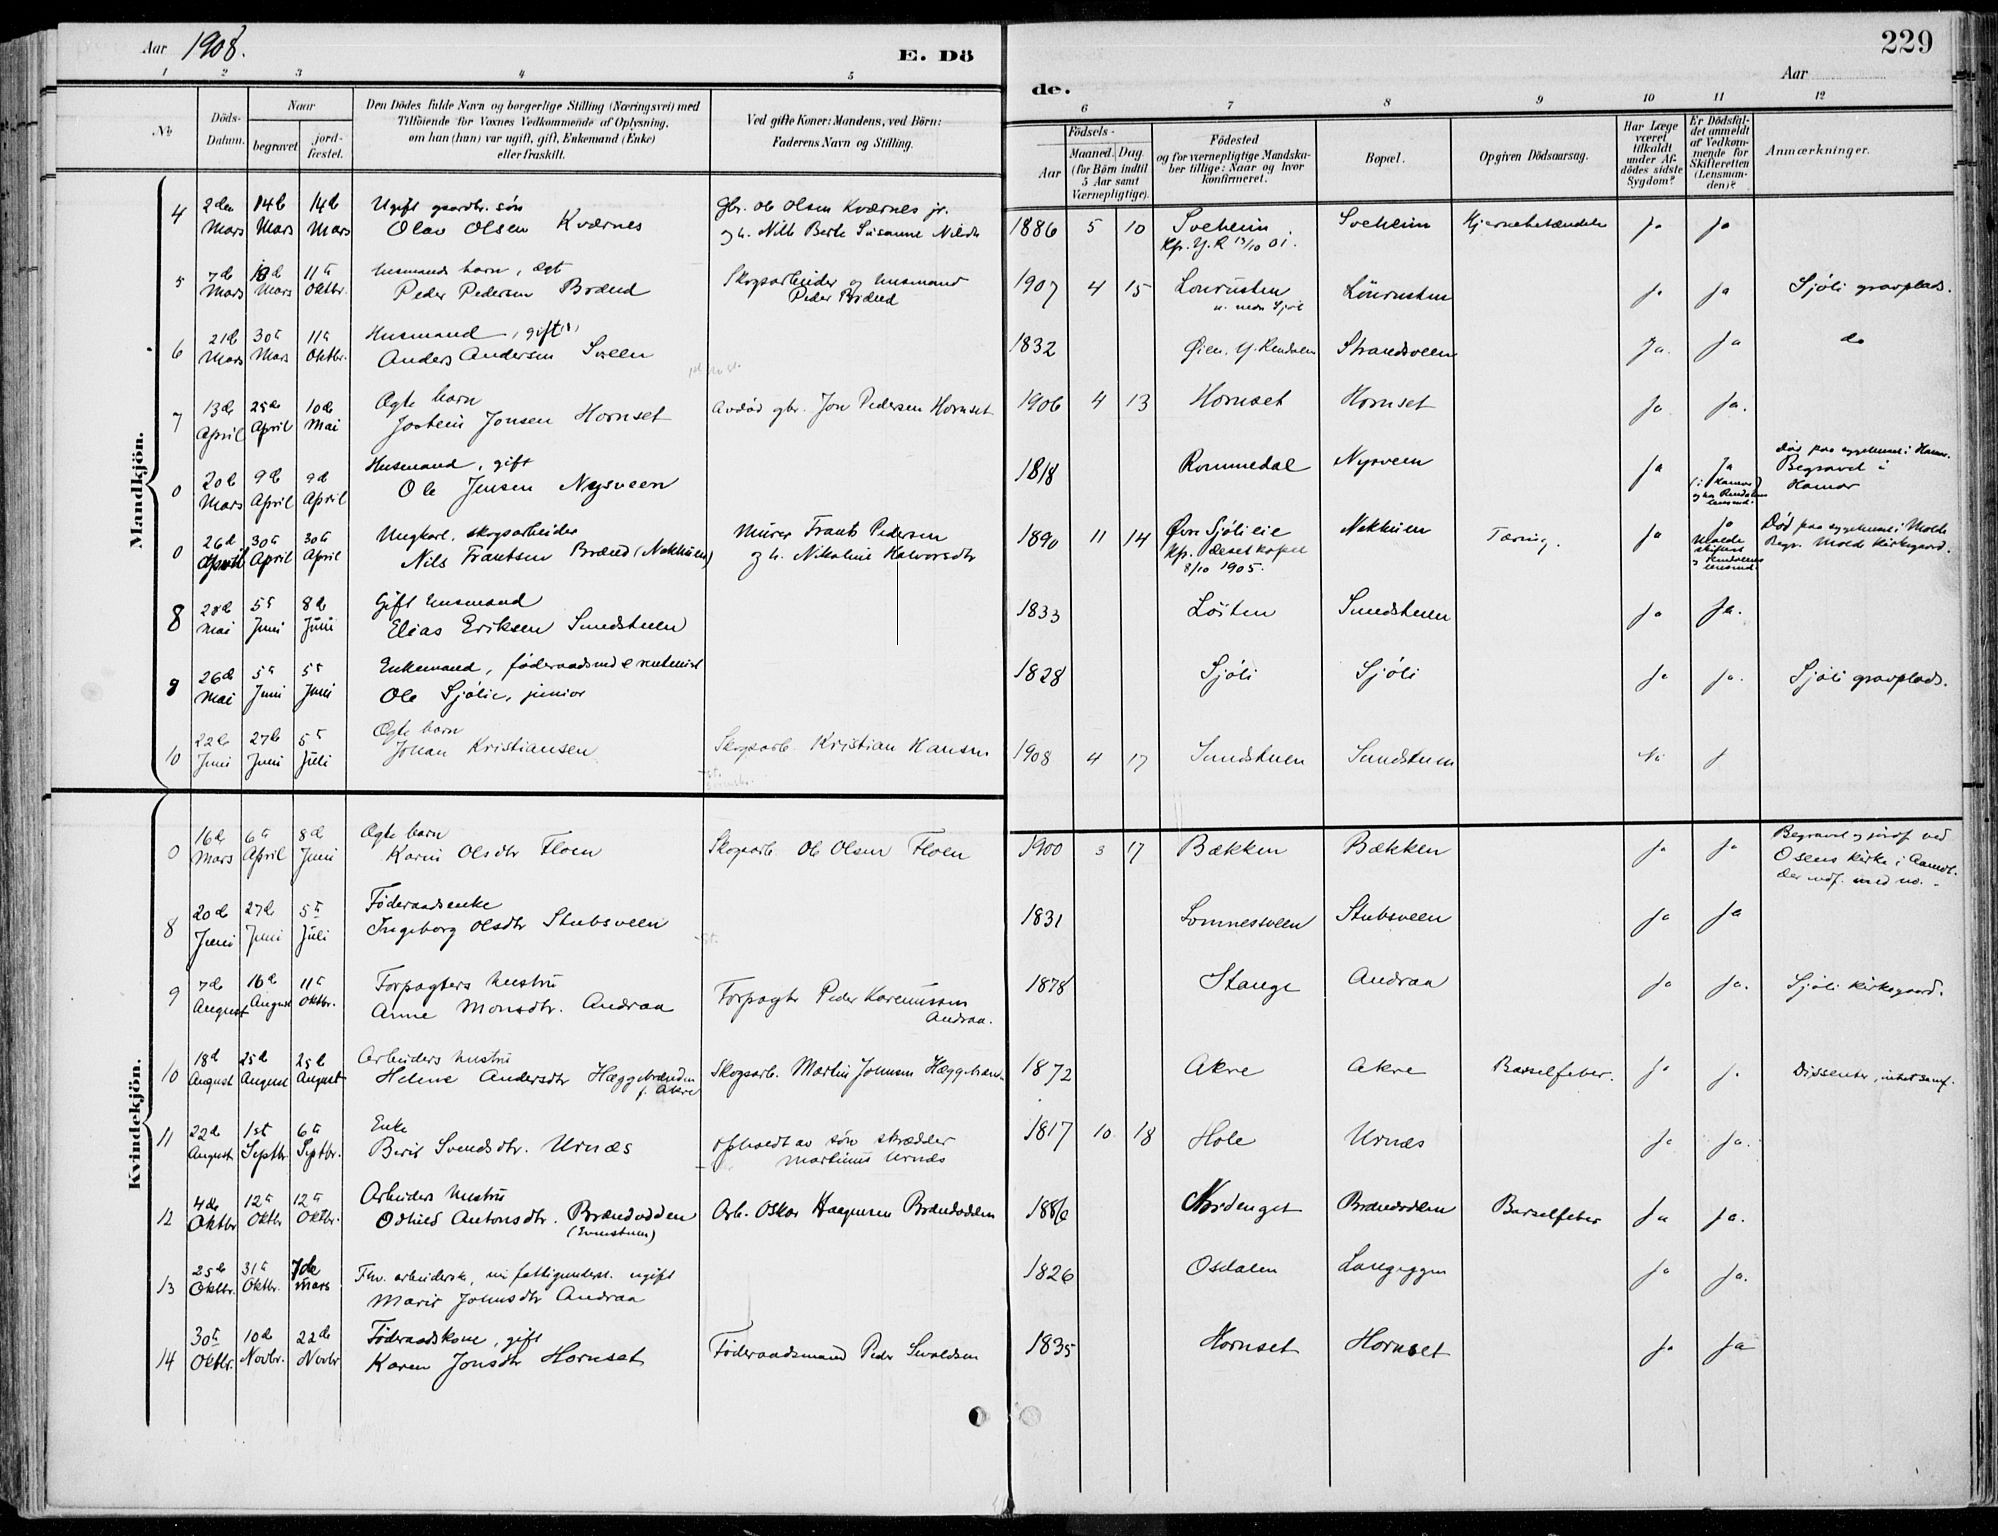 Aar 1908.
E. Dö
de.
229
Aar
1 2 3 4 5
6 7 8 9 10 11 12
No
Döds-
Datum.
Naar
begravet
jord-
fæstet.
Den Dödes fulde Navn og borgerlige Stilling (Næringsvei) med
Tilföiende for Voxnes Vedkommende af Oplysning,
om han (hun) var ugift, gift, Enkemand (Enke)
eller fraskilt.
Ved gifte Koner: Mandens, ved Börn:
Faderens Navn og Stilling.
Födsels-
Aar
Maaned. Dag.
(for Börn indtil
5 Aar samt
Værnepligtige).
Födested
og for værnepligtige Mandska-
ber tillige: Naar og hvor
konfirmeret.
Bopæl.
Opgiven Dödsaarsag.
Har Læge
været
tilkaldt
under Af-
dödes sidste
Sygdom?
Er Dödsfal-
det anmeldt
af Vedkom-
mende for
Skifteretten
(Lensman-
den)?
Anmærkninger.
Mandkjön.
4 2den Mars 14de Mars 14de Mars Ugift gaardbr. søn
Olav Olsen Kværnes
Gbr. Ole Olsen Kværnes jr.
og h. Nille Berte Susanne Nilsdr
1886 5 10 Sveheim Sveheim Hjernebetændelse Ja Ja
Kfr. Y. R 13/10 01.
5 7de Mars 18de Mars 11te Oktbr. Husmands barn, ægt
Peder Pedersen Brænd
Skogsarbeider og husmand
Peder Brænd
1907 4 15 Lönrusten Lönrusten Ja Ja Sjöli gravplads.
6 21de Mars 30te Mars 11te Oktbr. Husmand, gift
Anders Andersen Sveen
1832 Øien, Y. Rendalen Strandsveen Ja. Ja do
7 13de April 25de April 10de Mai Ægte barn
Jostein Jonsen Hornset Avdød gbr. Jon Pedersen Hornset
1906 4 13 Hornset Hornset Ja Ja.
0 20de Mars 9de April 9de April Husmand, gift
Ole Jensen Nysveen
1818 Rommedal Nysveen Ja Ja
Død paa sygehuset i Hamar.
Begravet i
Hamar
0 26de April 30te April 30te April Ungkarl, skogsarbeider
Nils Frantsen Brænd (Nakkuen)
Murer Frants Pedersen
og h. Nikoline Halvorsdtr
1890 11 14 Øvre Sjöli eie Nakkuen Tæring. Ja Ja
8/10 1905.
Død paa sygehuset i Molde
Begr. Molde kirkegaard.
8 28de Mai 5te Juni 8de Juni Gift husmand
Elias Eriksen Sundstuen
1833 Löiten Sundstuen Ja Ja.
9 26de Mai 5te Juni 5te Juni Enkemand, føderaadsmd & rentenist
Ole Sjölie, junior
1828 Sjöli Sjöli Ja Ja. Sjöli gravplads.
10 22de Juni 27de Juni 5te Juli Ægte barn
Johan Kristiansen Skogsarb. Kristian Hansen
1908 4 17 Sundstuen Sundstuen Nei
Kvindekjön.
0 16de Mars 6te April 8de Juni Ægte barn
Karin Olsdtr Floen Skogsarb. Ole Olsen Floen
1900 3 17 Bækken Bækken Ja Ja
Begravet og jordf. ved
Osens kirke i Aamot.
Der indf. med no.
8 20de Juni 27de Juni 5te Juli Føderaadsenke
Ingeborg Olsdtr Stubsveen
1831 Lomnessveen Stubsveen Ja Ja
9 7de August 16de August 11te Oktbr. Forpagters hustru
Anne Monsdtr. Andraa
Forpagter Peder Karenussen
Andraa.
1878 Stange Andraa Ja Ja. Sjöli kirkegaard.
10 18de August 25de August 25de August Arbeiders hustru
Helene Andersdtr Hæggebrænden
f. Akre
Skogsarb. Martin Johnsen Hæggebrænden
1872 Akre Akre Barselfeber. Ja J. Dissenter, intet samf.
11 22de August 1st Septbr. 6te Septbr. Enke
Berit Svendsdtr. Urnæs
opholdt av søn skrædder
Martinus Urnæs
1817 10 18 Hole Urnæs Ja Ja.
12 4de Oktbr 12te Oktbr 12te Oktbr. Arbeiders hustru
Othilie Antonsdtr. Brændvolden
(Evenstuen)
Arb. Oskar Haagensen Brændvolden
1886 Nordenget Brændvolden Barselfeber Ja Ja.
13 25de Oktbr. 31te Oktbr. 7de mars Fhv. arbeiderske, nu fattigunderst. ugift
Marit Johnsdtr Andraa
1826 Osdalen Langeggen Ja Ja.
14 30te Oktbr. 10de Novbr. 22de Novbr Føderaadskone, gift
Karen Jonsdtr Hornset Føderaadsmand Peder Sevaldsen
1835 Hornset Hornset Ja Ja